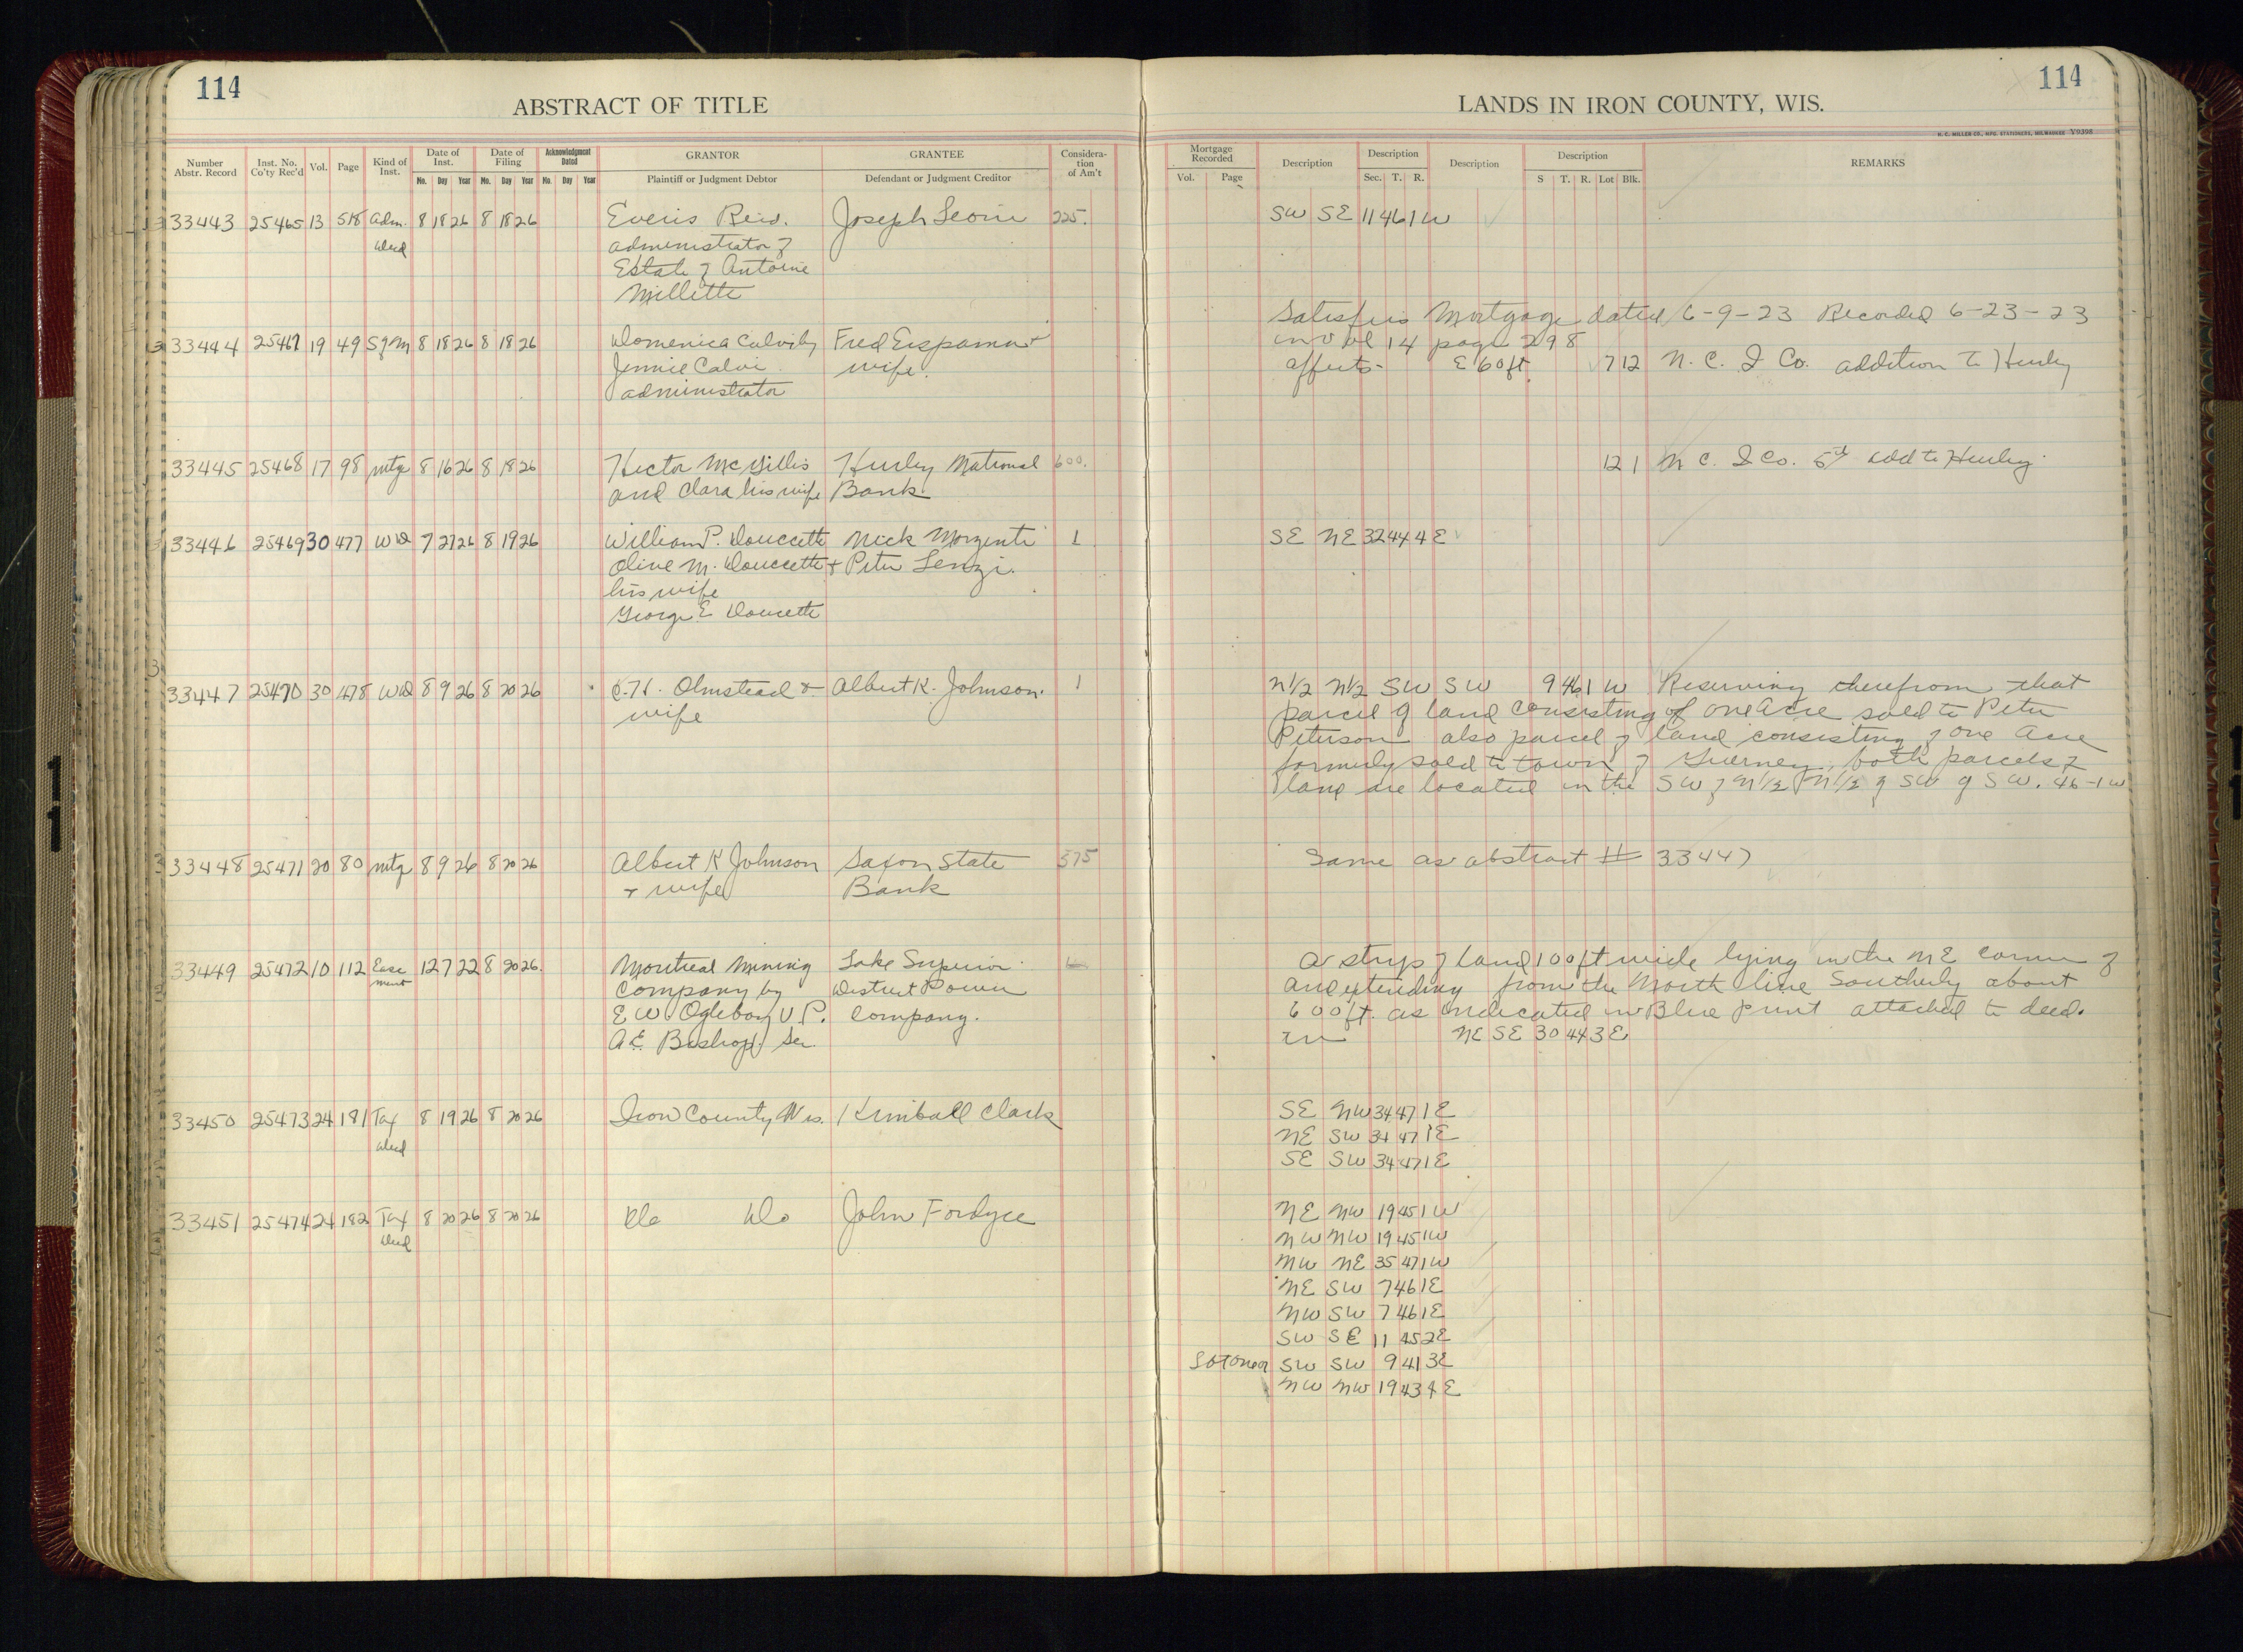 114
ABSTRACT OF TITLE
Number Abstr. Record Inst. No. Co'ty Rec'd Vol. Page Kind of Inst. Date of Inst. Date of Filing Acknowledgment Dated GRANTOR GRANTEE Considera-tion of Am't
Mo. Day Year Mo. Day Year Mo. Day Year Plaintiff or Judgment Debtor Defendant or Judgment Creditor
33443 25465 13 518 Adm. 8 18 26 8 18 26 Everis Reid. Joseph 225.
Deed administrator of
Estate of Antoine
Millette
33444 25467 19 49 S of M 8 18 26 8 18 26 Domenica Calvi by Fred &
Jennie Calvi wife.
administrator
33445 25468 17 98 Mtg 8 16 26 8 18 26 Hector McGillis Hurley National 600.
and Clara his wife Bank.
33446 25469 30 477 WD 7 27 26 8 19 26 William P. Doucette Nick Morzenti 1
Olive M. Doucette & Peter Lenzi.
his wife
George E Doucette
33447 25470 30 478 WD 8 9 26 8 20 26 C.H. Olmstead & Albert K. Johnson. 1
wife
33448 25471 20 80 Mtg 8 9 26 8 20 26 Albert K Johnson Saxon State 375
& wife Bank
33449 25472 10 112 Ease 12 7 22 8 20 26. Montreal Mining Lake Superior
ment Company by District Power
E W. Oglebay V.P. Company.
A E Bishop Sec.
33450 25473 24 181 Tax 8 19 26 8 20 26 Iron County Wis. Kimball Clark
Deed
33451 25474 24 182 Tax 8 20 26 8 20 26 Do Do John Fordyce
Deed
114
LANDS IN IRON COUNTY, WIS.
H. C. MILLER CO., MFG. STATIONERS, MILWAUKEE Y9398
Mortgage Recorded Description Description Description Description REMARKS
Vol. Page Sec. T. R. S T. R. Lot Blk.
SW SE 11 46 1 W
Satisfies Mortgage dated 6-9-23 Recorded 6-23-23
in Vol 14 page 298
affects- E 60 ft 7 12 N. C. I Co. addition to Hurley
12 1 N C. I Co. 5th add to Hurley
SE NE 32 44 4 E
N1/2 N1/2 SW SW 9 46 1 W Reserving therefrom that
parcel of land consisting of one acre sold to Peter
Peterson also parcel of land consisting of one Acre
formerly sold to town of Guerney, both parcels of
land are located in the SW of N1/2 N1/2 of SW of SW. 46-1W
Same as abstract # 33447
A strip of land 100 ft wide lying in the NE corner of
and extending from the North line Southerly about
600 ft. as indicated in Blue print attached to deed.
in NE SE 30 44 3 E
SE NW 34 47 1 E
NE SW 34 47 1 E
SE SW 34 47 1 E
NE NW 19 45 1 W
NW NW 19 45 1 W
NW NE 35 47 1 W
NE SW 7 46 1 E
NW SW 7 46 1 E
SW SE 11 45 2 E
SW SW 9 41 3 E
NW NW 19 43 4 E